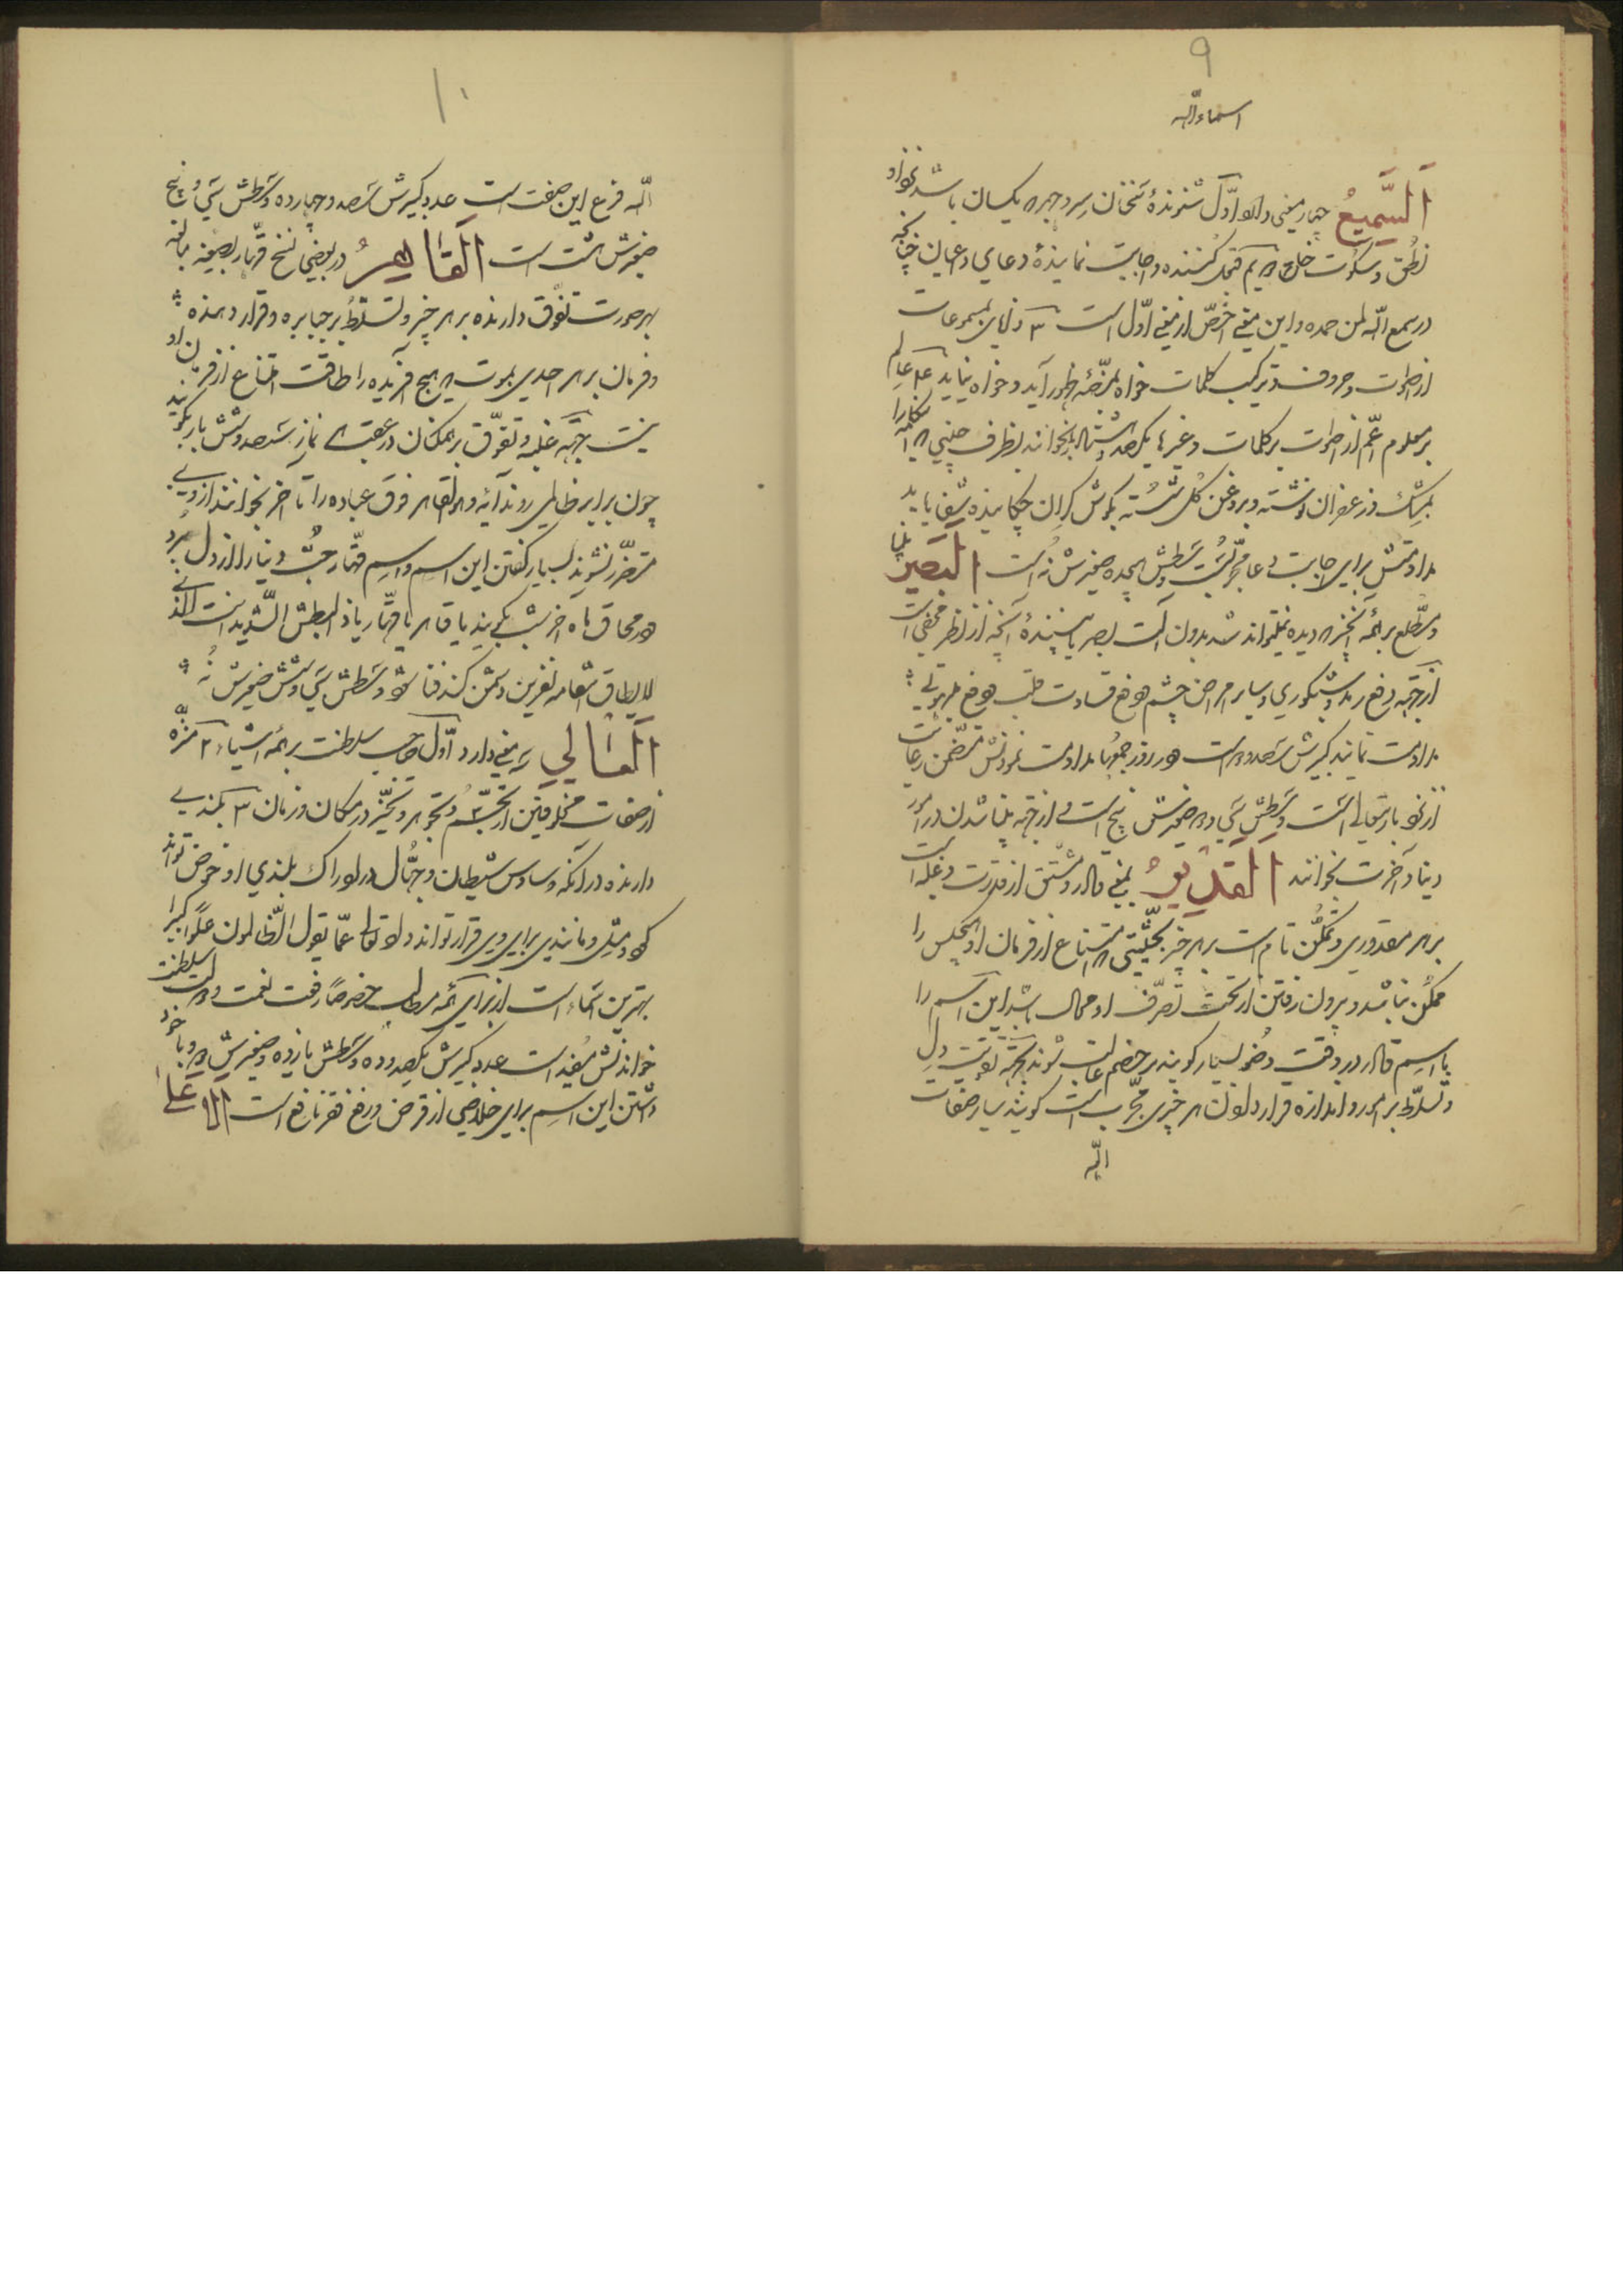 ۹
اسماءاللّه
اَلسَّمیعُ چهار معنی دارد اوّل شنوندهٔ سخنان سر و جهر یکسان باشد نزد او
نطق و سکوت خلق ۲ بمعنی قبول کننده و اجابت نمایندهٔ دعای داعیان چنانچه
در سمع اللّه لمن حمده و این معنی اخصّ از معنی اوّل است ۳ دانای بمسموعات
از اصوات و حروف و ترکیب کلمات خواه بمرّضه ظهور آید و خواه نیاید ۴ عالم
بر معلوم اعمّ از اصوات و کلمات و غیرها یکصد و هشتاد بار بخوانند بظرف چینی
بمشک و زعفران نوشته و بروغن گل شسته بگوش گران چکانیده شفا یابد
مداومتش برای اجابت دعا مجرّبست وسطش هیجده صغیرش نه است البَصیرُ بینا
و مطّلع بر همه چیز که دیده نمیتواند شد بدون آلت بصر یا بینندهٔ آنچه از نظر مخفی است
از جهة دفع رمد و شبکوری و سایر امراض چشم و رفع قساوت قلب
مداومت نمایند کبیرش سیصد و دو است و هر روز جمعه مداومت نمودنش متضمّن رعایت
از نزد باریتعالی است وسطش سی و دو صغیرش پنج است و از جهة بینا شدن در امور
دنیا و آخرت بخوانند القَدیرُ بمعنی قادر و مشتق از قدرت و غلبه است
بر هر مقدوری و تمکّن تام است بر هر چیز بحیثیتی که امتناع از فرمان او هیچکس را
ممکن نباشد و بیرون رفتن از تحت تصرّف او محال باشد این اسم را
با اسم قادر در وقت وضو بسیار گویند بر خصم غالب شوند بجهة تقویت دل
و تسلّط بر امور و اندازه قرار دادن هر چیزی مجرّب است گویند سایر صفات
الٓه
۱۰
الٓه فرع این صفت است عدد کبیرش سیصد و چهارده وسطش سی و پنج
صغیرش هشت است اَلقاهِرُ در بعضی نسخ قهّار بصیغه مبالغه
بهر صورت تفوّق دارنده بر هر چیز و تسلّط بر جبابره و قرار دهنده
و فرمان بر هر احدی بموت که هیچ آفریده را طاقت امتناع از فرمان او
نیست جهة غلبه و تفوّق بر همگنان در عقب نماز سیصد و شش بار بگویند
چون برابر ظالمی روند آیهٔ و هو القاهر فوق عباده را تا آخر بخوانند از وی
متضرّر نشوند بسیار گفتن این اسم و اسم قهّار حبّ دنیا را از دل برد
و در محاق ماه آخر شب بگویند یا قاهر یا قهّار یا ذا البطش الشّدید انت الذی
لا یطاق انتقامه نفرین دشمن کند فنا شود وسطش سی و شش صغیرش نه
اَلعالی سه معنی دارد اوّل صاحب سلطنت بر همه اشیاء ۲ منزّه
از صفات مخلوقین از تجسّم و تجوهر و تحیّز در مکان و زمان ۳ بلندی
دارنده در آنکه وساوس شیطان و جهّال در ادراک بلندی او خوض تواند
کرد و مثلی و مانندی برای وی قرار تواند داد تعالی عمّا یقول الظّالمون علوّاً کبیرا
بهترین اسماء است از برای همه مطالب خصوصاً رفعت نعمت و دولت و سلطنت
خواندنش مفید است عدد کبیرش یکصد و ده وسطش یازده و صغیرش دو و با خود
داشتن این اسم برای خلاصی از قرض و رفع فقر نافع است